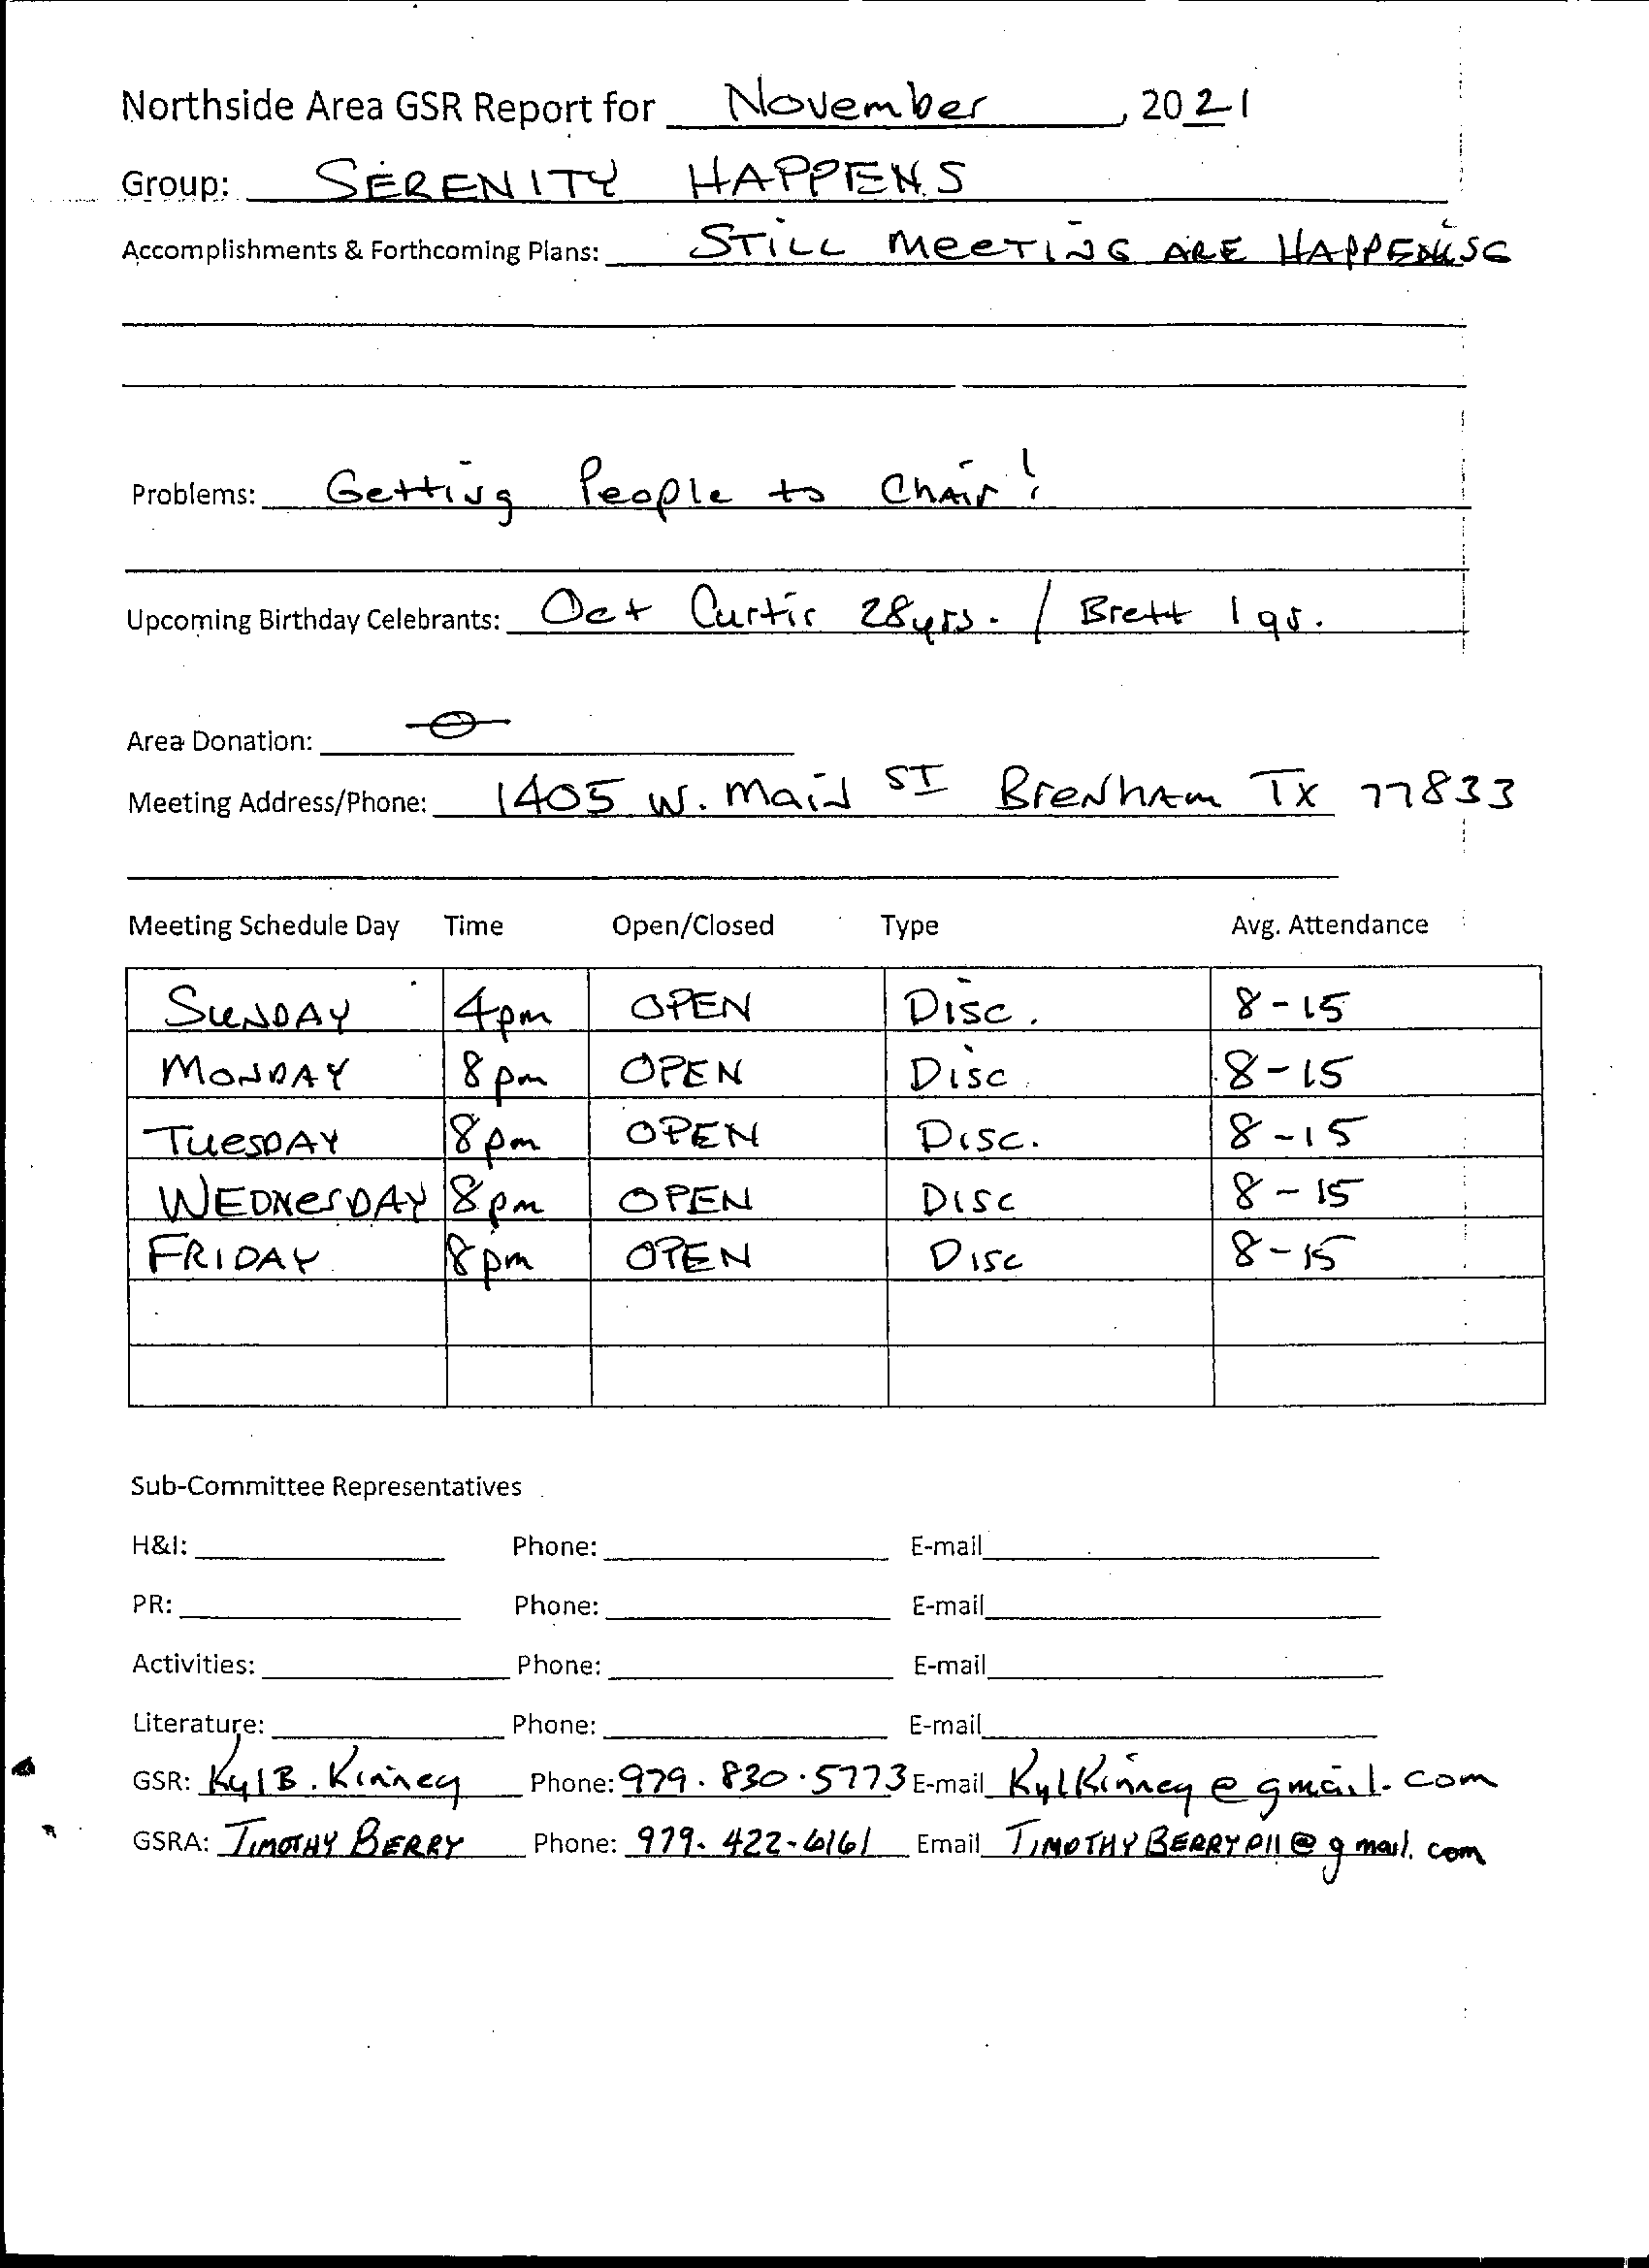 Northside Area GSR Report for November, 2021
Group: SERENITY HAPPENS
Accomplishments & Forthcoming Plans: STILL MEETING ARE HAPPENING
Problems: Getting People to Chair!
Upcoming Birthday Celebrants: Oct Curtis 28yrs. / Brett 1 yr.
Area Donation: 0
Meeting Address/Phone: 1405 W. Main ST Brenham TX 77833
Meeting Schedule Day Time Open/Closed Type Avg. Attendance
SUNDAY 4pm OPEN Disc. 8-15
MONDAY 8pm OPEN Disc 8-15
TUESDAY 8pm OPEN Disc. 8-15
WEDNESDAY 8pm OPEN Disc 8-15
FRIDAY 8pm OPEN Disc 8-15
Sub-Committee Representatives
H&I: Phone: E-mail
PR: Phone: E-mail
Activities: Phone: E-mail
Literature: Phone: E-mail
GSR: Kyl B. Kinney Phone: 979.830.5773 E-mail KylKinney@gmail.com
GSRA: TIMOTHY BERRY Phone: 979-422-6161 Email